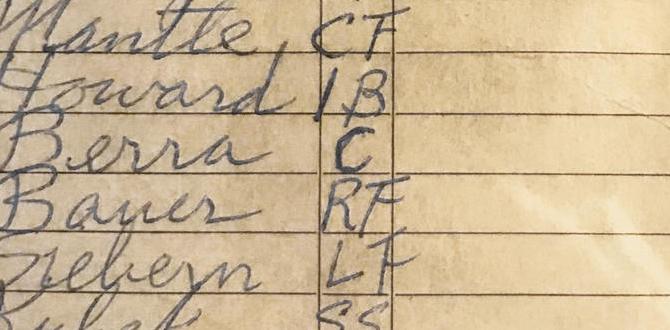 Mantle CF
Howard 1B
Berra C
Bauer RF
Siebern LF
SS